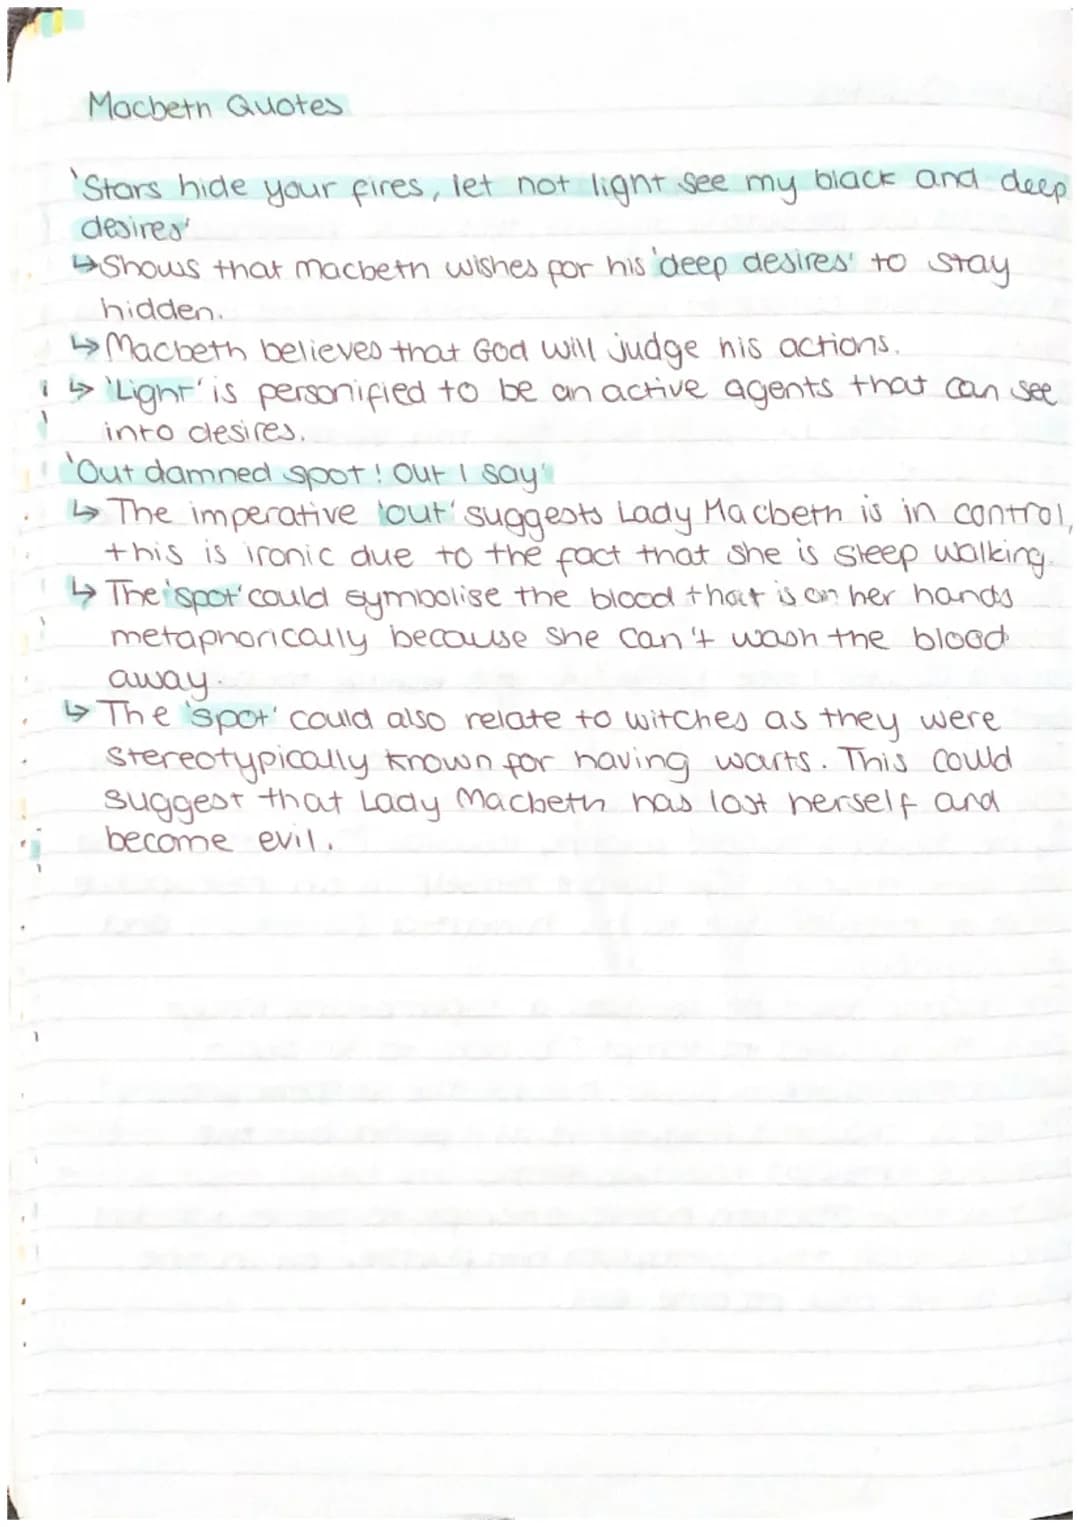 Macbeth Quotes
'Stars hide your fires, let not light see my black and deep
desires'
↳Shows that macbeth wishes for his 'deep desires' to stay
hidden.
↳Macbeth believes that God will judge his actions.
↳ 'Light' is personified to be an active agents that can see
into desires.
'Out damned spot! Out I say'
↳ The imperative 'out' suggests Lady Macbeth is in control,
this is ironic due to the fact that she is sleep walking.
↳ The 'spot' could symbolise the blood that is on her hands
metaphorically because she can't wash the blood
away.
↳ The 'spot' could also relate to witches as they were
stereotypically known for having warts. This could
suggest that Lady Macbeth has lost herself and
become evil.